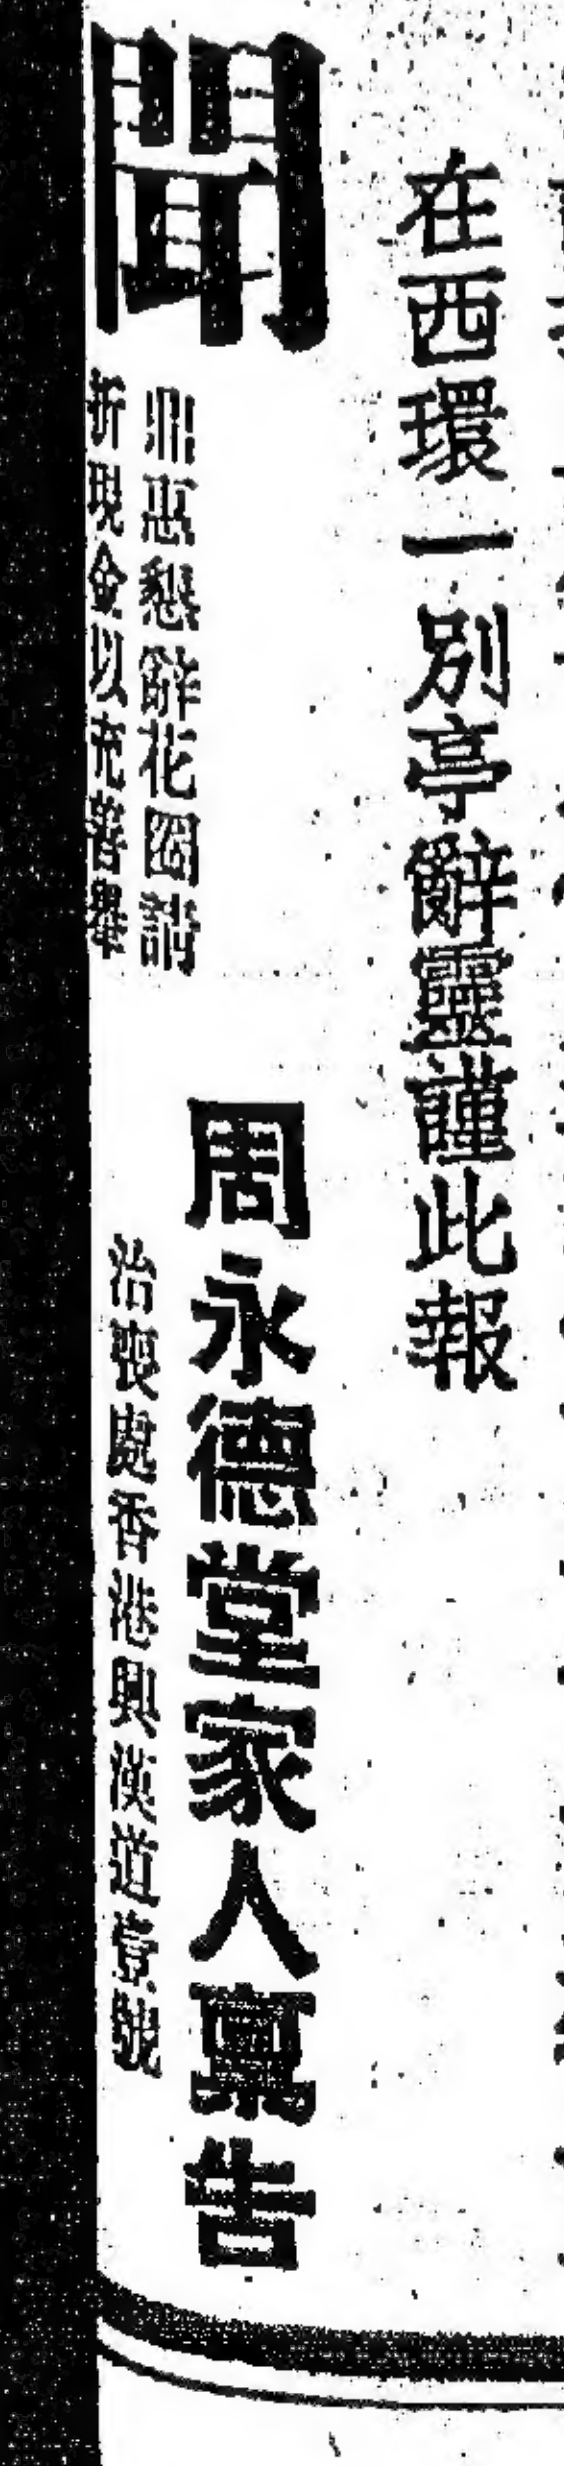 在西環一別亭辭靈謹此報
聞
鼎惠懇辭花圈請
折現金以充善舉
周永德堂家人稟告
治喪處香港興漢道壹號